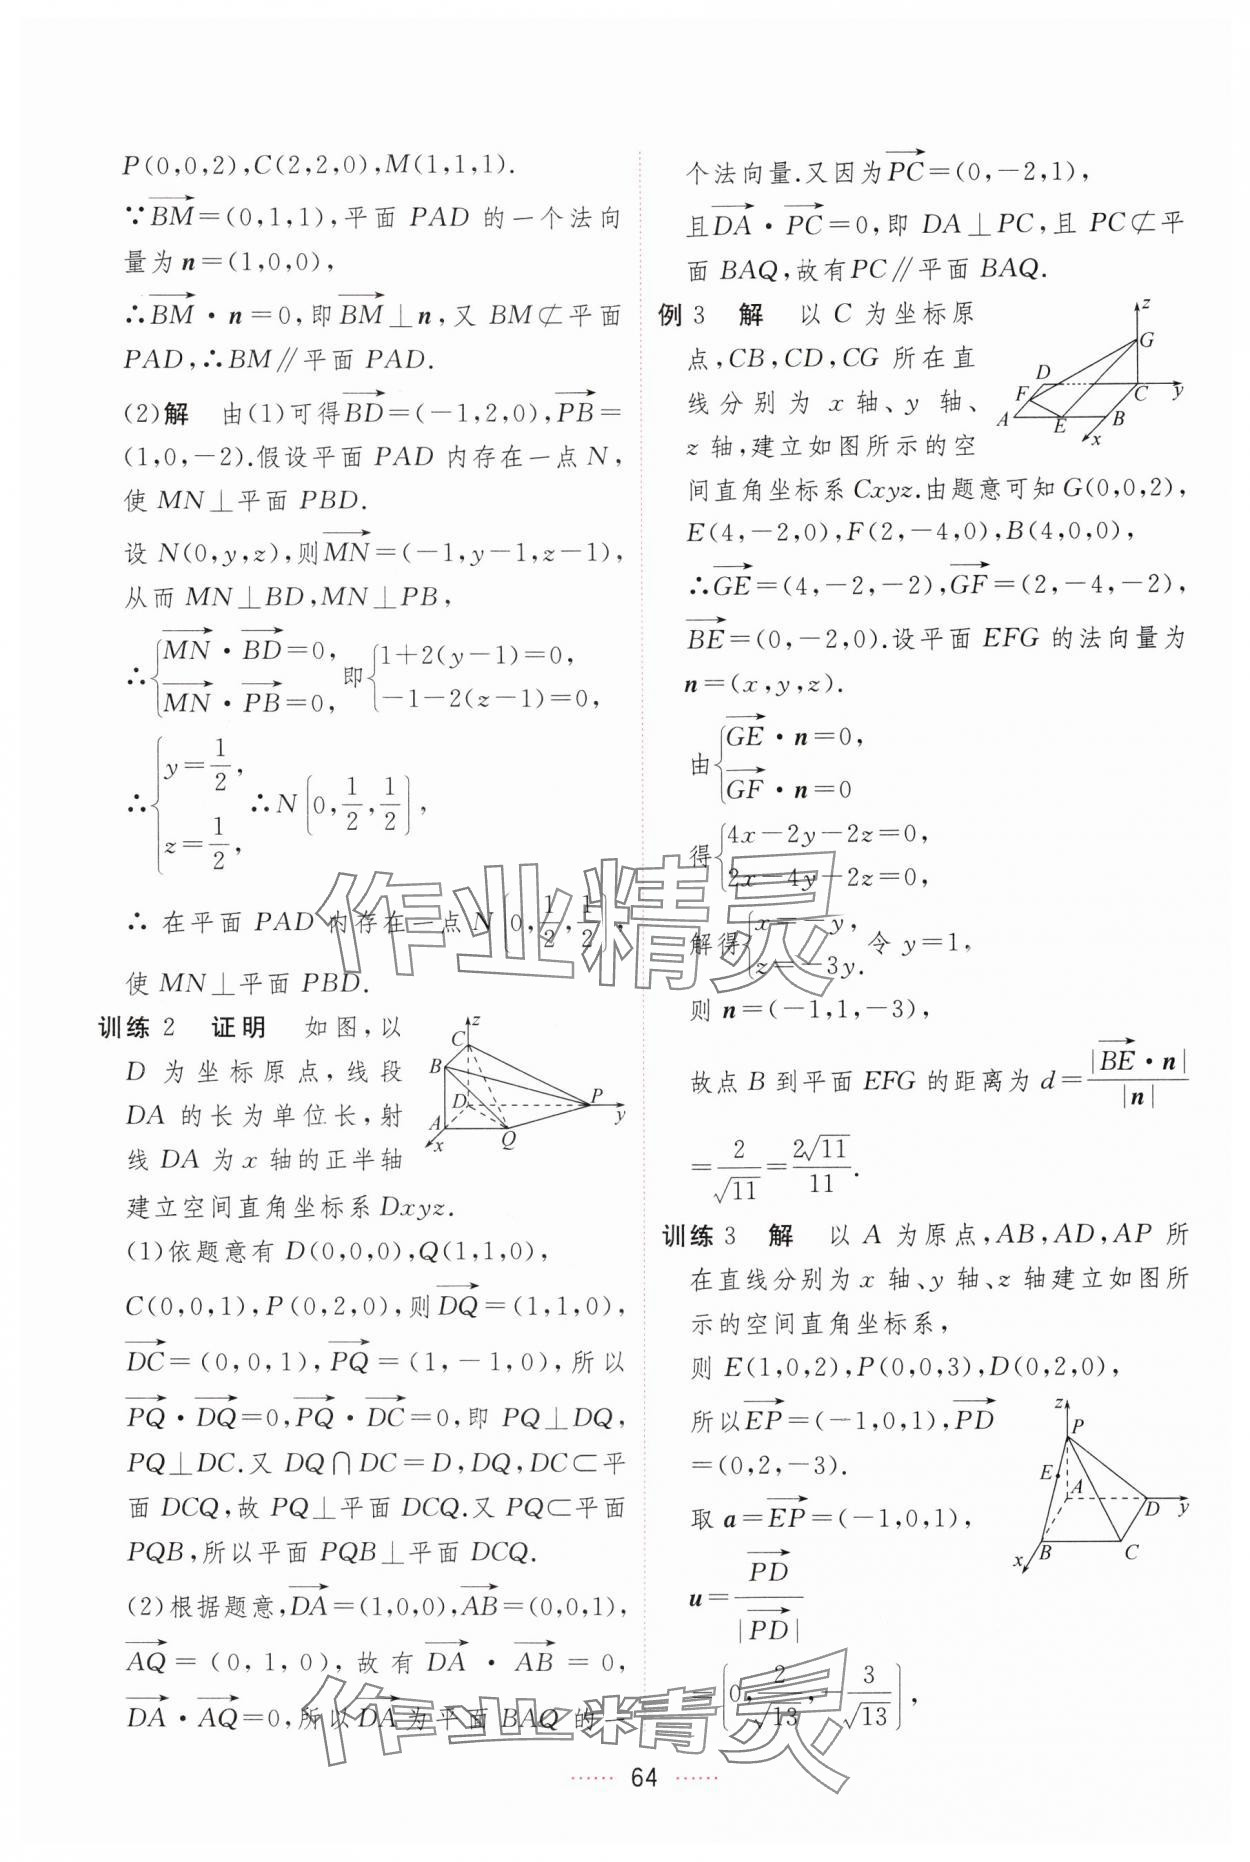 P(0,0,2),C(2,2,0),M(1,1,1).
∵BM→=(0,1,1),平面 PAD 的一个法向
量为 n=(1,0,0),
∴BM→·n=0,即BM→⊥n,又 BM⊄平面
PAD,∴BM∥平面 PAD.
(2)解 由(1)可得BD→=(-1,2,0),PB→=
(1,0,-2).假设平面 PAD 内存在一点 N,
使 MN⊥平面 PBD.
设 N(0,y,z),则MN→=(-1,y-1,z-1),
从而 MN⊥BD,MN⊥PB,
∴{MN→·BD→=0, MN→·PB→=0, 即{1+2(y-1)=0, -1-2(z-1)=0,
∴{y=1/2, z=1/2, ∴N(0,1/2,1/2),
∴ 在平面 PAD 内存在一点 N(0,1/2,1/2),
使 MN⊥平面 PBD.
训练 2 证明 如图,以
D 为坐标原点,线段
DA 的长为单位长,射
线 DA 为 x 轴的正半轴
建立空间直角坐标系 Dxyz.
z
C
B
D
P
y
A
x
Q
(1)依题意有 D(0,0,0),Q(1,1,0),
C(0,0,1),P(0,2,0),则DQ→=(1,1,0),
DC→=(0,0,1),PQ→=(1,-1,0),所以
PQ→·DQ→=0,PQ→·DC→=0,即 PQ⊥DQ,
PQ⊥DC.又 DQ∩DC=D,DQ,DC⊂平
面 DCQ,故 PQ⊥平面 DCQ.又 PQ⊂平面
PQB,所以平面 PQB⊥平面 DCQ.
(2)根据题意,DA→=(1,0,0),AB→=(0,0,1),
AQ→=(0,1,0),故有DA→·AB→=0,
DA→·AQ→=0,所以DA→为平面 BAQ 的一
个法向量.又因为PC→=(0,-2,1),
且DA→·PC→=0,即 DA⊥PC,且 PC⊄平
面 BAQ,故有PC∥平面 BAQ.
例 3 解 以 C 为坐标原
点,CB,CD,CG 所在直
线分别为 x 轴、y 轴、
z 轴,建立如图所示的空
间直角坐标系 Cxyz.由题意可知 G(0,0,2),
z
G
D
F
C
y
A
E
B
x
E(4,-2,0),F(2,-4,0),B(4,0,0),
∴GE→=(4,-2,-2),GF→=(2,-4,-2),
BE→=(0,-2,0).设平面 EFG 的法向量为
n=(x,y,z).
由{GE→·n=0, GF→·n=0
得{4x-2y-2z=0, 2x-4y-2z=0,
解得{x=-y, z=-3y. 令 y=1,
则 n=(-1,1,-3),
故点 B 到平面 EFG 的距离为 d=|BE→·n|/|n|
=2/√11=2√11/11.
训练 3 解 以 A 为原点,AB,AD,AP 所
在直线分别为 x 轴、y 轴、z 轴建立如图所
示的空间直角坐标系,
则 E(1,0,2),P(0,0,3),D(0,2,0),
所以EP→=(-1,0,1),PD→
=(0,2,-3).
取 a=EP→=(-1,0,1),
z
P
E
A
D
y
B
C
x
u=PD→/|PD→|
=(0,2/√13,-3/√13),
作业精灵
作业精灵
······ 64 ······